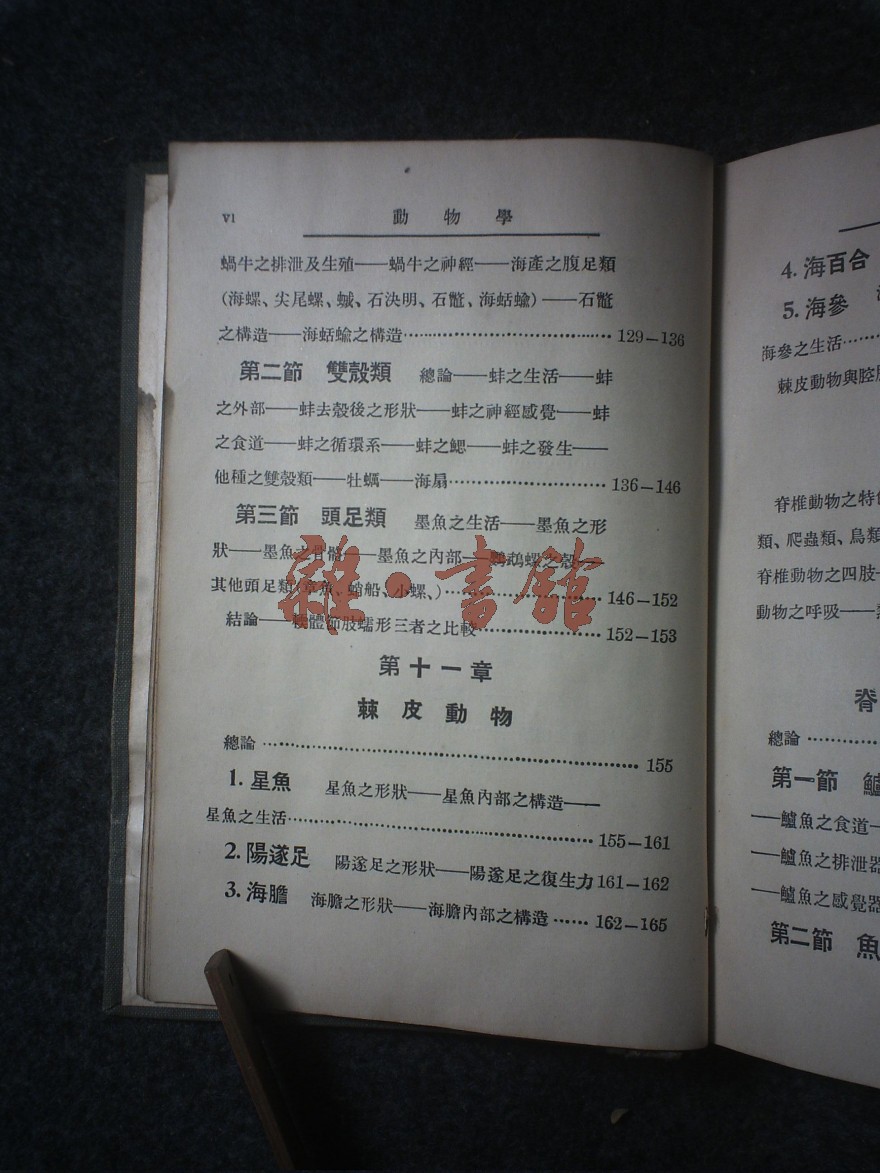 VI 動物學
蝸牛之排泄及生殖——蝸牛之神經——海產之腹足類
(海螺、尖尾螺、蚘、石決明、石鼈、海蛞蝓)——石鼈
之構造——海蛞蝓之構造…………129—136
第二節 雙殼類 總論——蚌之生活——蚌
之外部——蚌去殼後之形狀——蚌之神經感覺——蚌
之食道——蚌之循環系——蚌之鰓——蚌之發生——
他種之雙殼類——牡蠣——海扇…………136—146
第三節 頭足類 墨魚之生活——墨魚之形
狀——墨魚之骨骼——墨魚之內部——鸚鵡螺之殼——
其他頭足類(章魚、蛸船、小螺、)…………146—152
結論——軟體節肢蠕形三者之比較…………152—153
第十一章
棘皮動物
總論…………155
1. 星魚 星魚之形狀——星魚內部之構造——
星魚之生活…………155—161
2. 陽遂足 陽遂足之形狀——陽遂足之復生力161—162
3. 海膽 海膽之形狀——海膽內部之構造……162—165
雜·書館
4. 海百合
5. 海參
海參之生活……
棘皮動物與腔
脊椎動物之特
類、爬蟲類、鳥類
脊椎動物之四肢
動物之呼吸——
脊
總論……
第一節 鱸
——鱸魚之食道—
——鱸魚之排泄器
——鱸魚之感覺器
第二節 魚